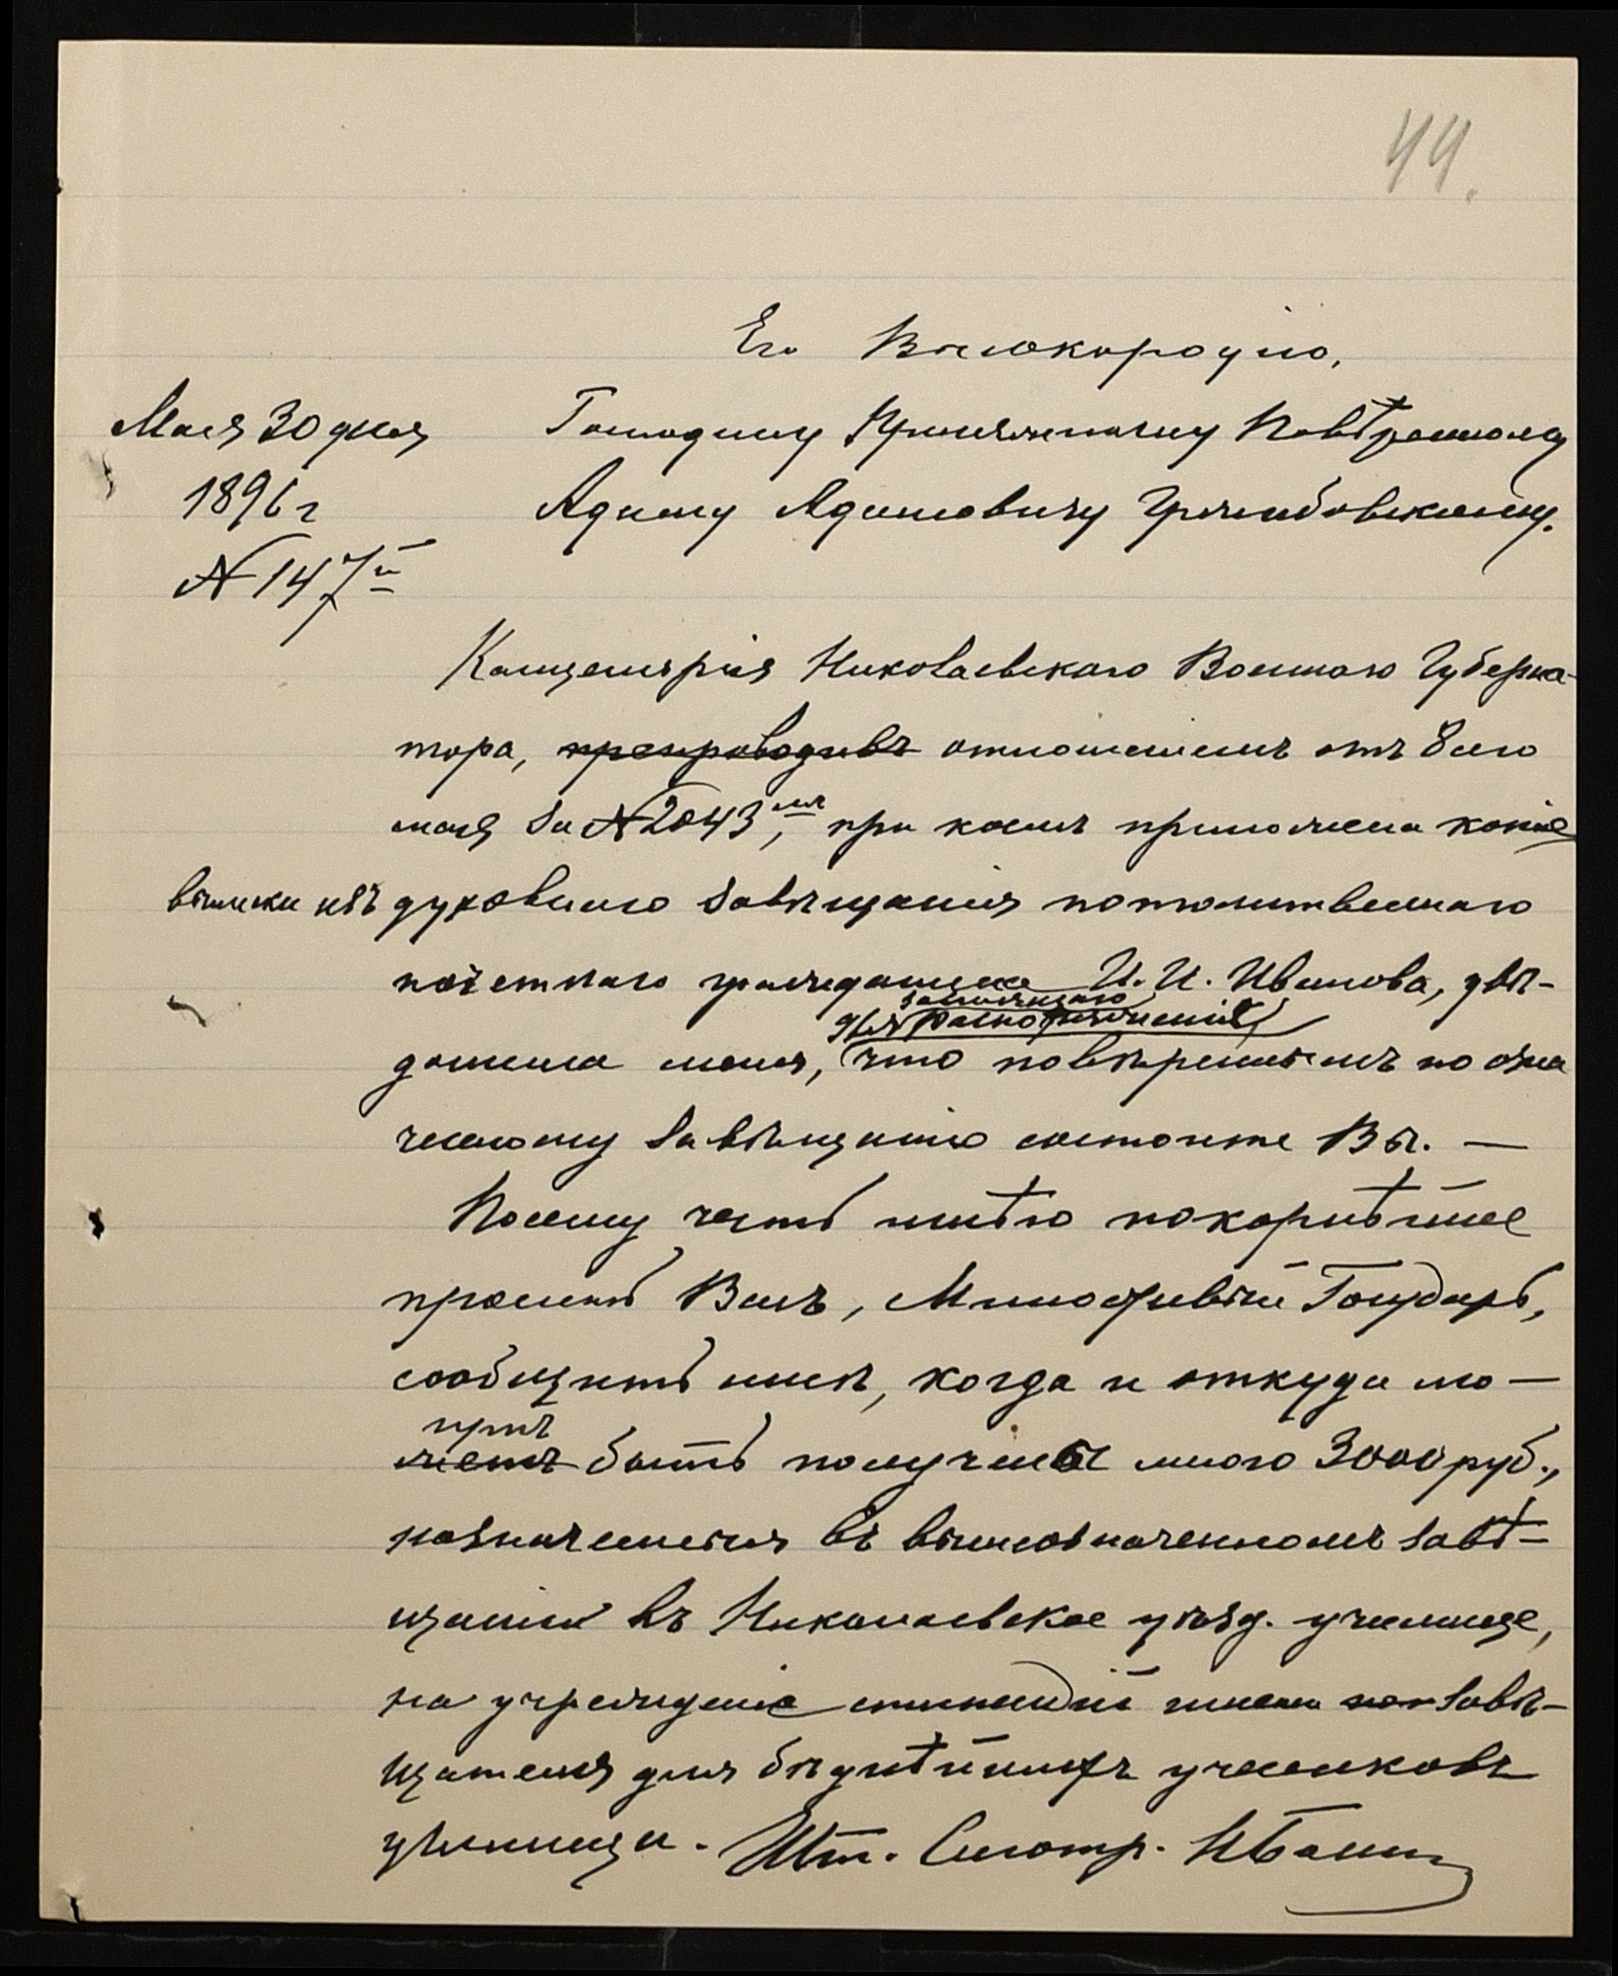 44.
Его Высокородію,
Мая 30 дня
1896 г
№ 147й
Господину Присяжному Повѣренному
Адаму Адамовичу Гржибовскому.
Канцелярія Николаевскаго Военнаго Губерна-
тора, препроводивъ отношеніемъ отъ 8 сего
мая за № 2043мъ, при коемъ приложена копія
выписки изъ духовнаго завѣщанія потомственнаго
почетнаго гражданина И. И. Иванова, увѣ-
домила меня, что повѣреннымъ по озна
ченному завѣщанію состоите Вы. —
Посему честь имѣю покорнѣйше
просить Васъ, Милостивый Государь,
сообщить мнѣ, когда и откуда мо-
жетъ быть получены мною 3000 руб.,
назначенныя въ вышеозначенномъ завѣ-
щаніи въ Николаевское уѣзд. училище,
на учрежденіе стипендій имени завѣ-
щателя для бѣднѣйшихъ учениковъ
училища. Шт. Смотр.